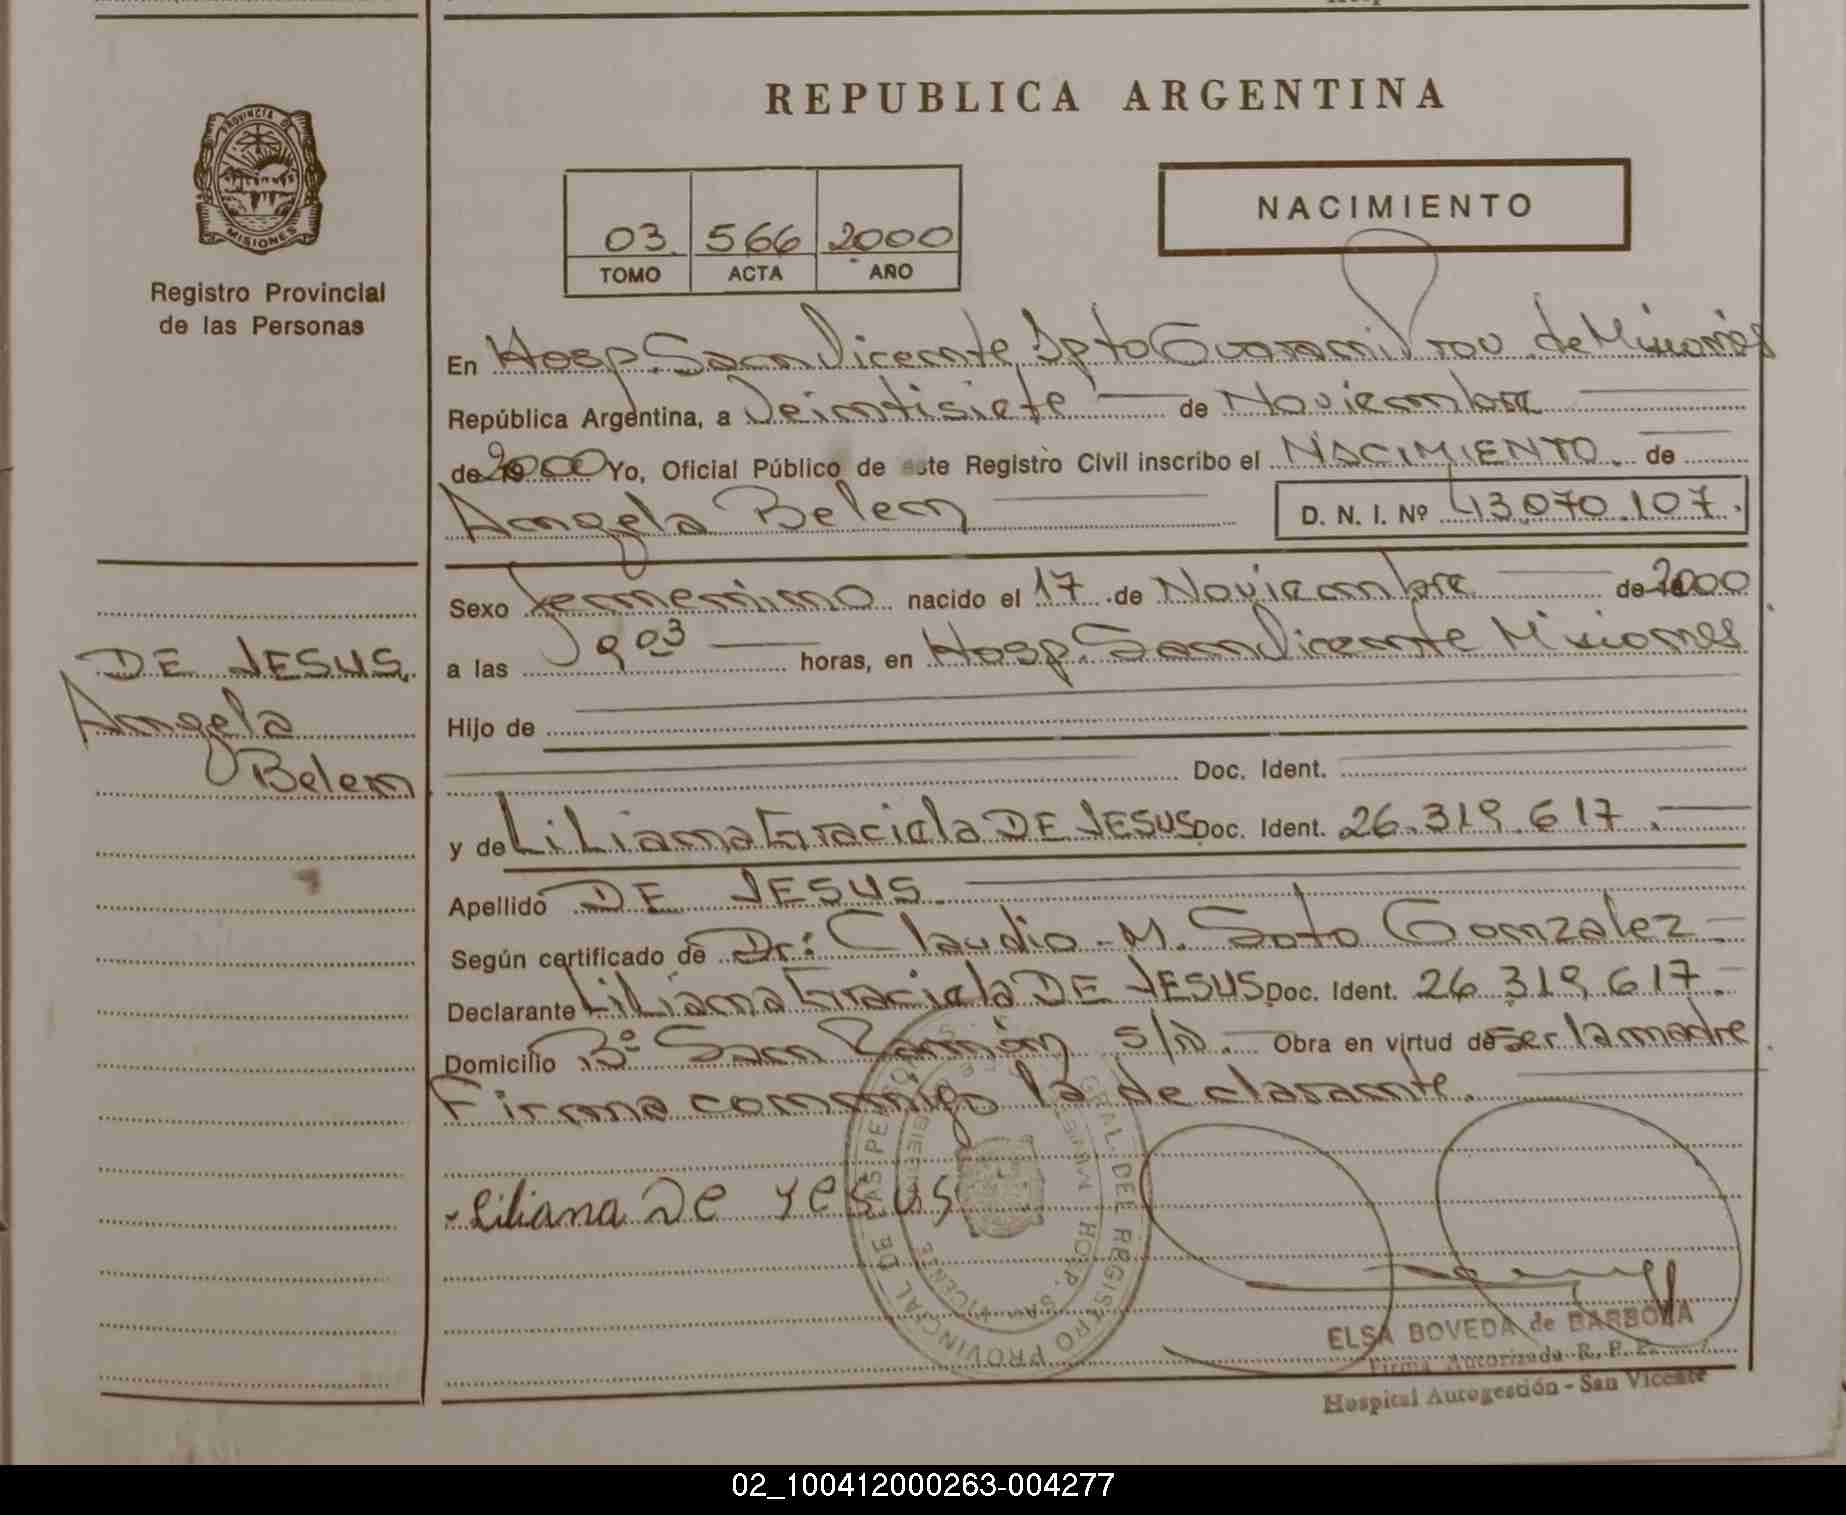 REPUBLICA ARGENTINA
PROVINCIA DE
MISIONES
Registro Provincial
de las Personas
03. 566 2000
TOMO ACTA AÑO
NACIMIENTO
En Hosp. San Vicente, Dpto Guaraní Prov. de Misiones
República Argentina, a Veintisiete de Noviembre
de 2000 Yo, Oficial Público de este Registro Civil inscribo el NACIMIENTO. de
Angela Belen D. N. I. Nº 43.070.107.
Sexo Femenino nacido el 17 de Noviembre de 2000
a las 9 03 horas, en Hosp. San Vicente Misiones
Hijo de
Doc. Ident.
y de Liliana Graciela DE JESUS Doc. Ident. 26.319.617.
Apellido DE JESUS.
Según certificado de Dr: Claudio M. Soto Gonzalez
Declarante Liliana Graciela DE JESUS Doc. Ident. 26.319.617.
Domicilio Bº San Ramón s/n. Obra en virtud de ser la madre
Firma conmigo la declarante.
DE JESUS.
Angela
Belen
Liliana De Jesus
GRAL. DEL REGISTRO PROVINCIAL DE LAS PERSONAS
HOSP. SAN VICENTE
ELSA BOVEDA de BARBOZA
Firma Autorizada R. P. P.
Hospital Autogestión - San Vicente
02_100412000263-004277